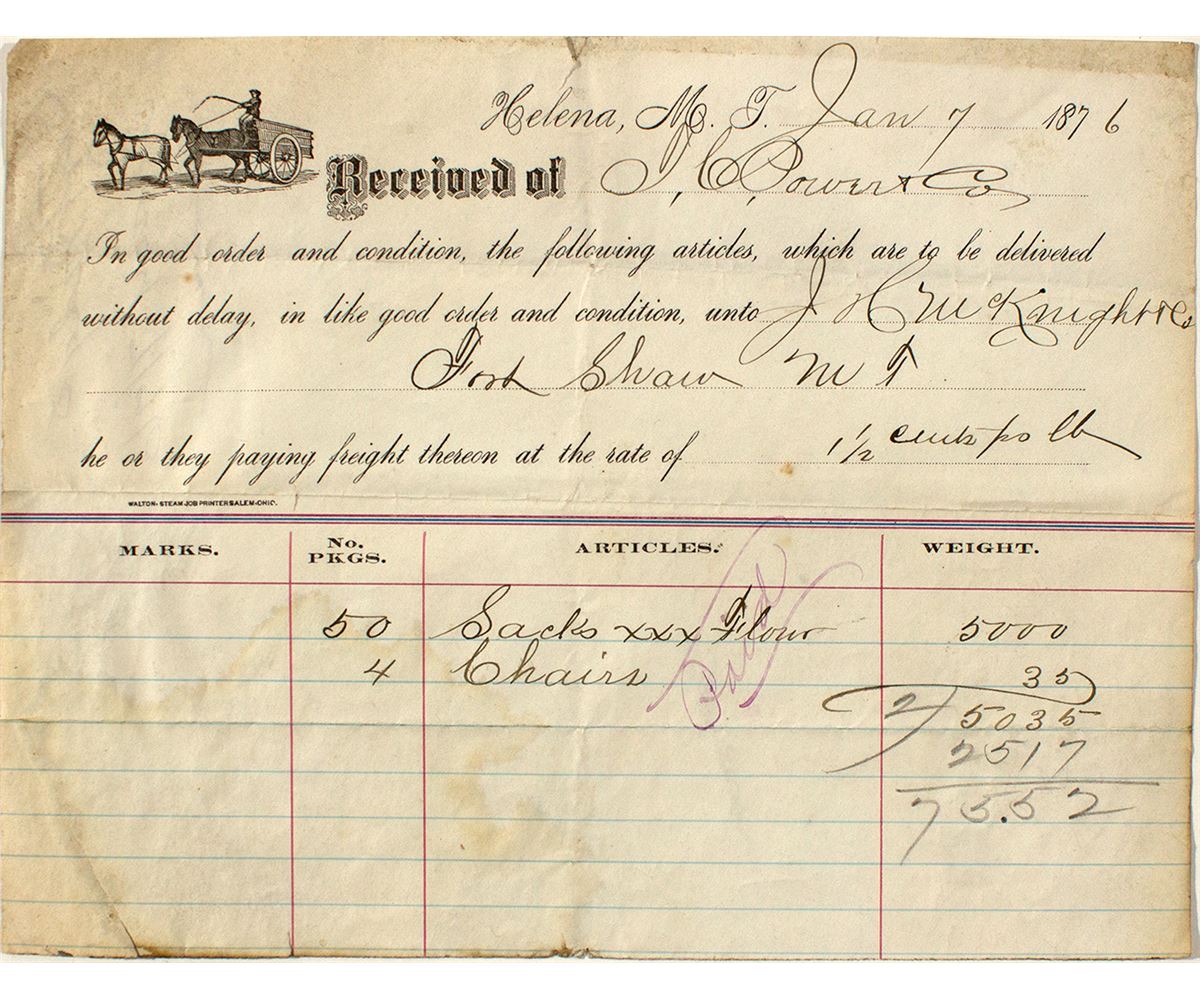 Helena, M. T. Jan 7 1876
Received of T, C, Power & Co
In good order and condition, the following articles, which are to be delivered
without delay, in like good order and condition, unto J H McKnight & Co
Fort Shaw M T
he or they paying freight thereon at the rate of 1 1/2 cents pr lb
WALTON- STEAM JOB PRINTER SALEM-OHIO.
MARKS. No. PKGS. ARTICLES. WEIGHT.
50 Sacks xxx Flour 5000
4 Chairs 35
Paid
2) 5035
2517
75.52